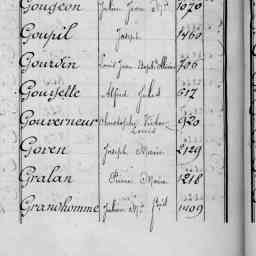 Gougeon Julien Jean Mie 1070
Goupil Joseph 1460
Gourdin Louis Jean Bapt. 706
Gouyelle Alfred Jules 617
Gouverneur Christophe Victor Louis 920
Goven Joseph Marie 2129
Gralan Pierre Marie 1218
Grandhomme Julien Mie fils 1409